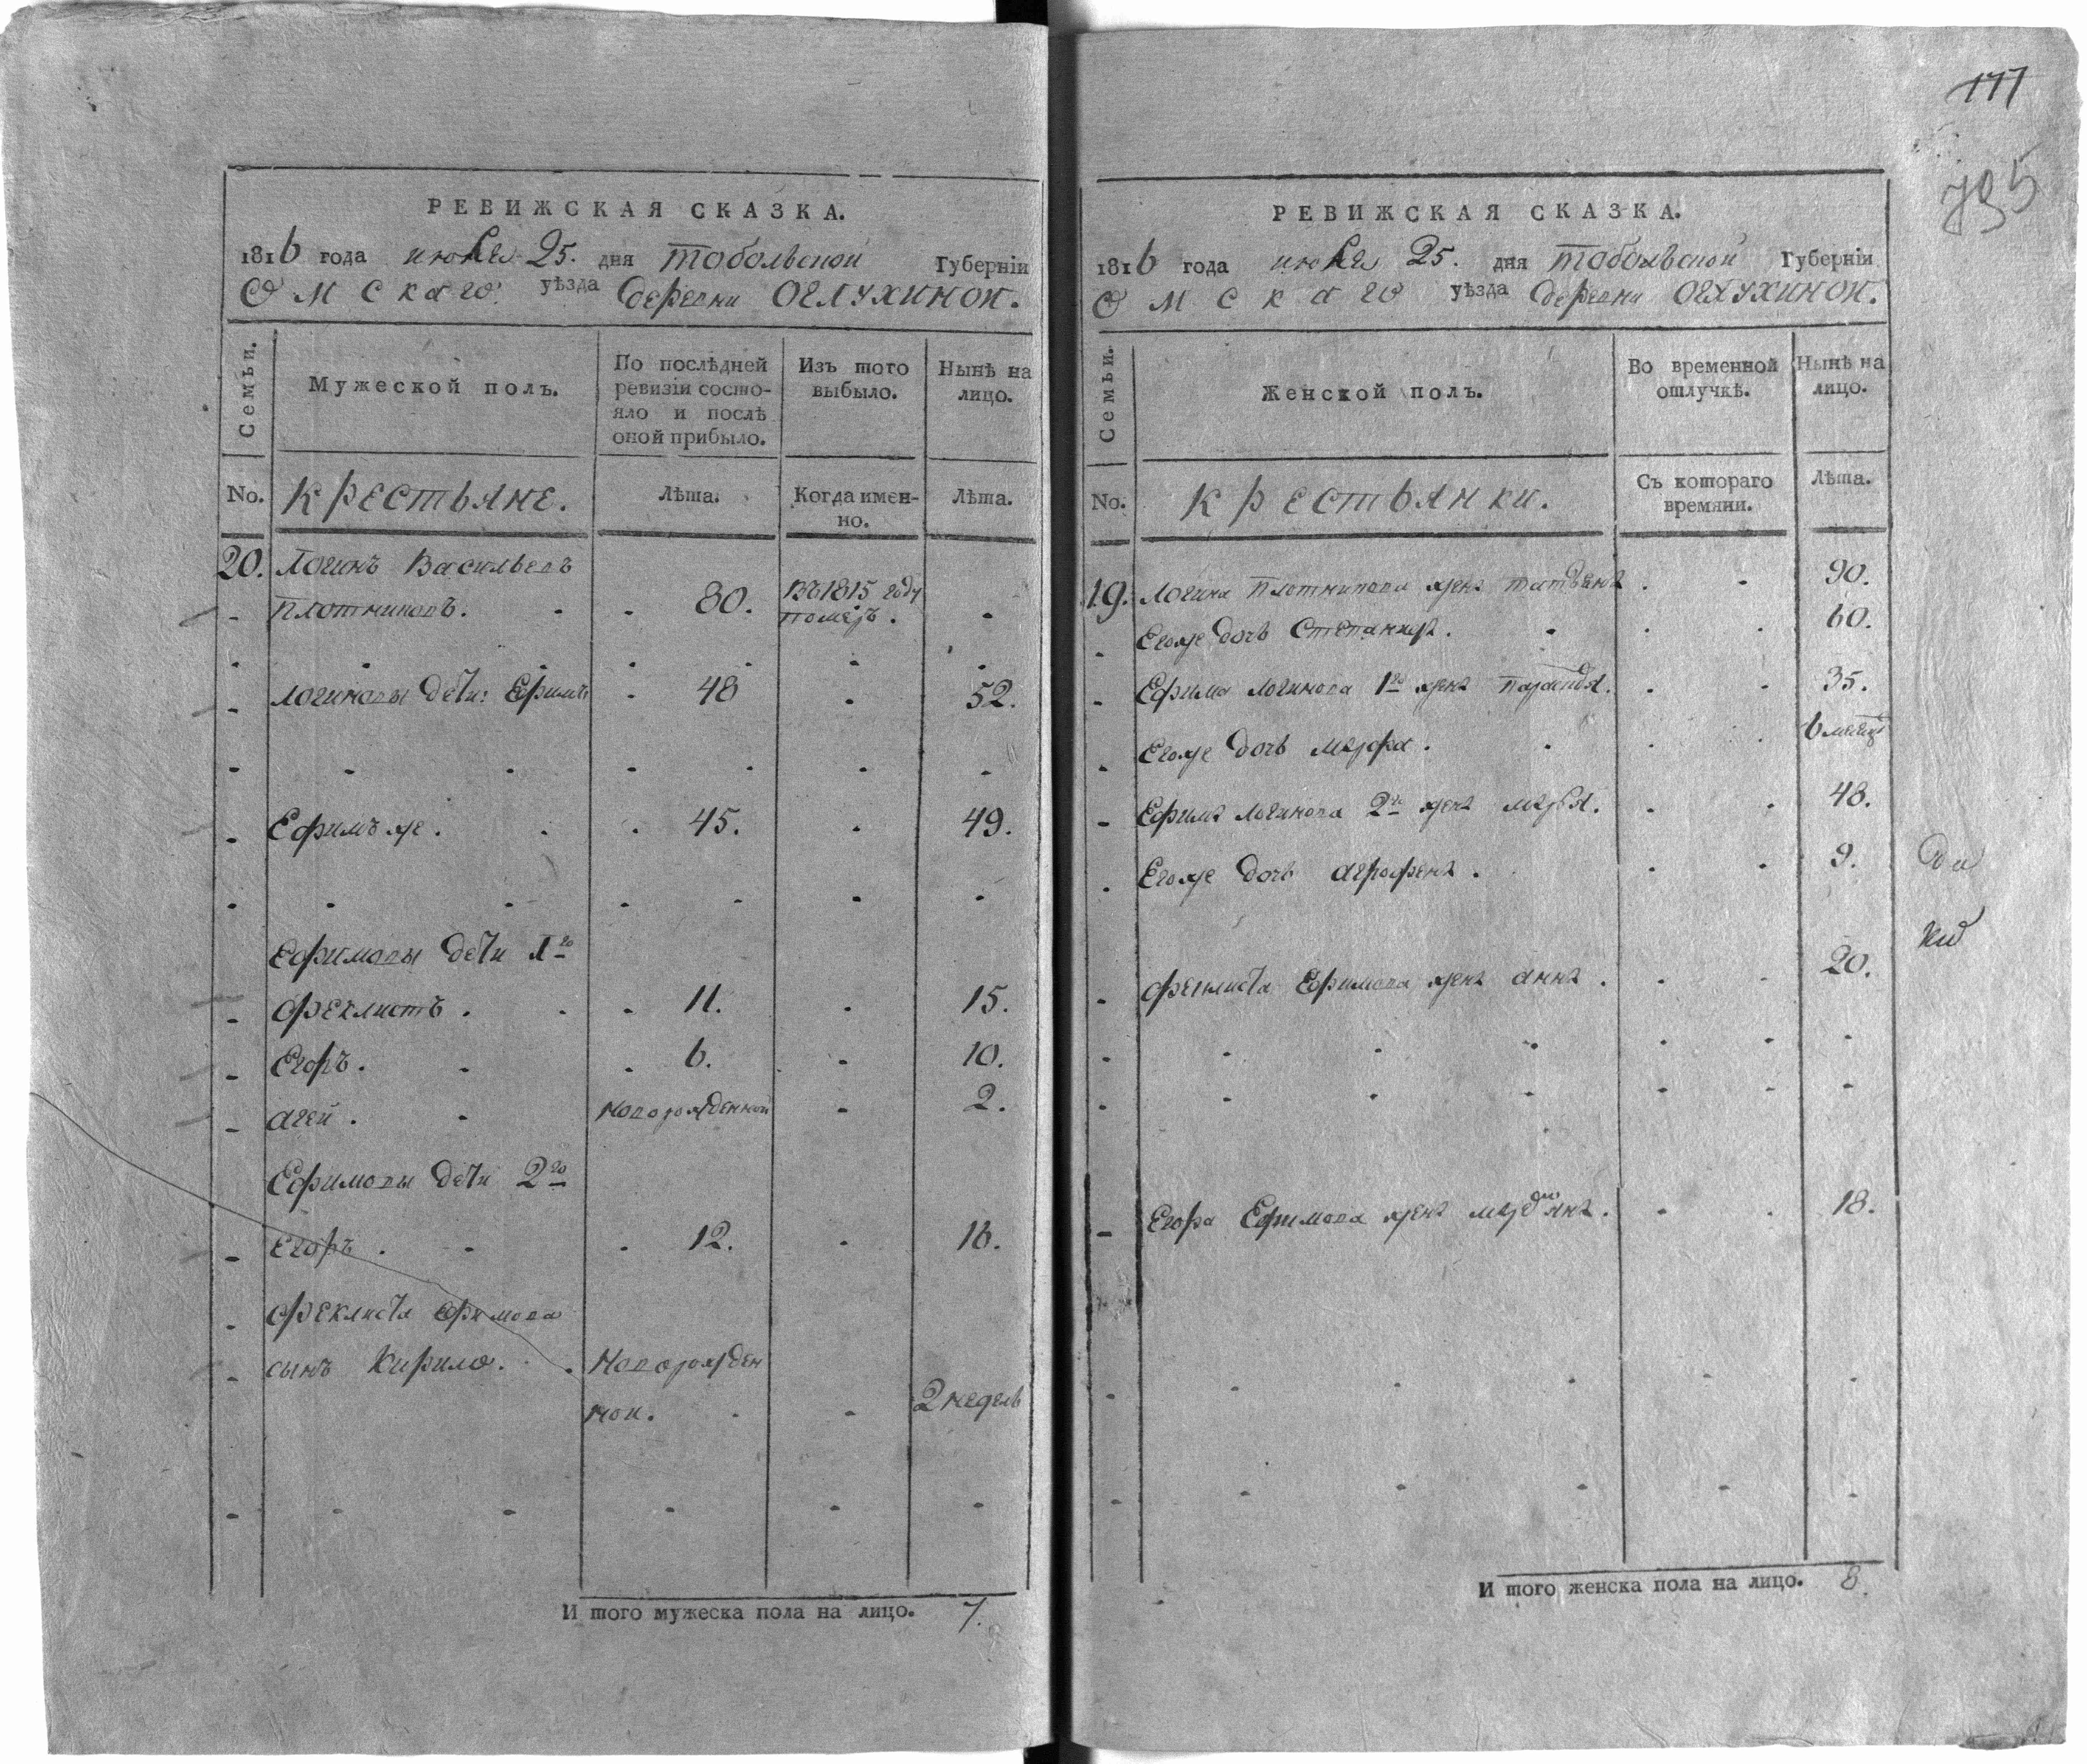 РЕВИЖСКАЯ СКАЗКА.
1816 года июня 25. дня Тобольской Губерніи
Омскаго уѣзда деревни Оглухиной.
Семьи.
Мужеской полъ.
По послѣдней ревизіи состо-
яло и послѣ
оной прибыло.
Изъ того
выбыло.
Нынѣ на
лицо.
No.
Крестьяне.
Лѣта.
Когда имен-
но.
Лѣта.
20. Логинъ Васильевъ
Плотниковъ. 80. Въ 1815 году
померъ.
Логиновы дети: Ефимъ 48 52.
Ефимъ же. 45. 49.
Ефимовы дети 1го
Феклистъ. 11. 15.
Егоръ. 6. 10.
Агей. новорожденной 2.
Ефимовы дети 2го
Егоръ. 12. 16.
Феклиста Ефимова
сынъ Кирило. Новорожден
ной. 2 недель
И того мужеска пола на лицо. 7.
177
РЕВИЖСКАЯ СКАЗКА.
1816 года июня 25. дня Тобольской Губерніи
Омскаго уѣзда деревни Оглухиной.
Семьи.
Женской полъ.
Во временной
отлучкѣ.
Нынѣ на
лицо.
No.
Крестьянки.
Съ котораго
времяни.
Лѣта.
19. Логина Плотникова жена Татьяна 90.
Егоже дочь Степанида. 60.
Ефима Логинова 1го жена Парасковья. 35.
Егоже дочь Марфа. 6 месяц
Ефима Логинова 2го жена Марья. 48.
Егоже дочь Агрофена. 9.
Феклиста Ефимова жена Анна. 20.
Егора Ефимова жена 18.
И того женска пола на лицо. 8.